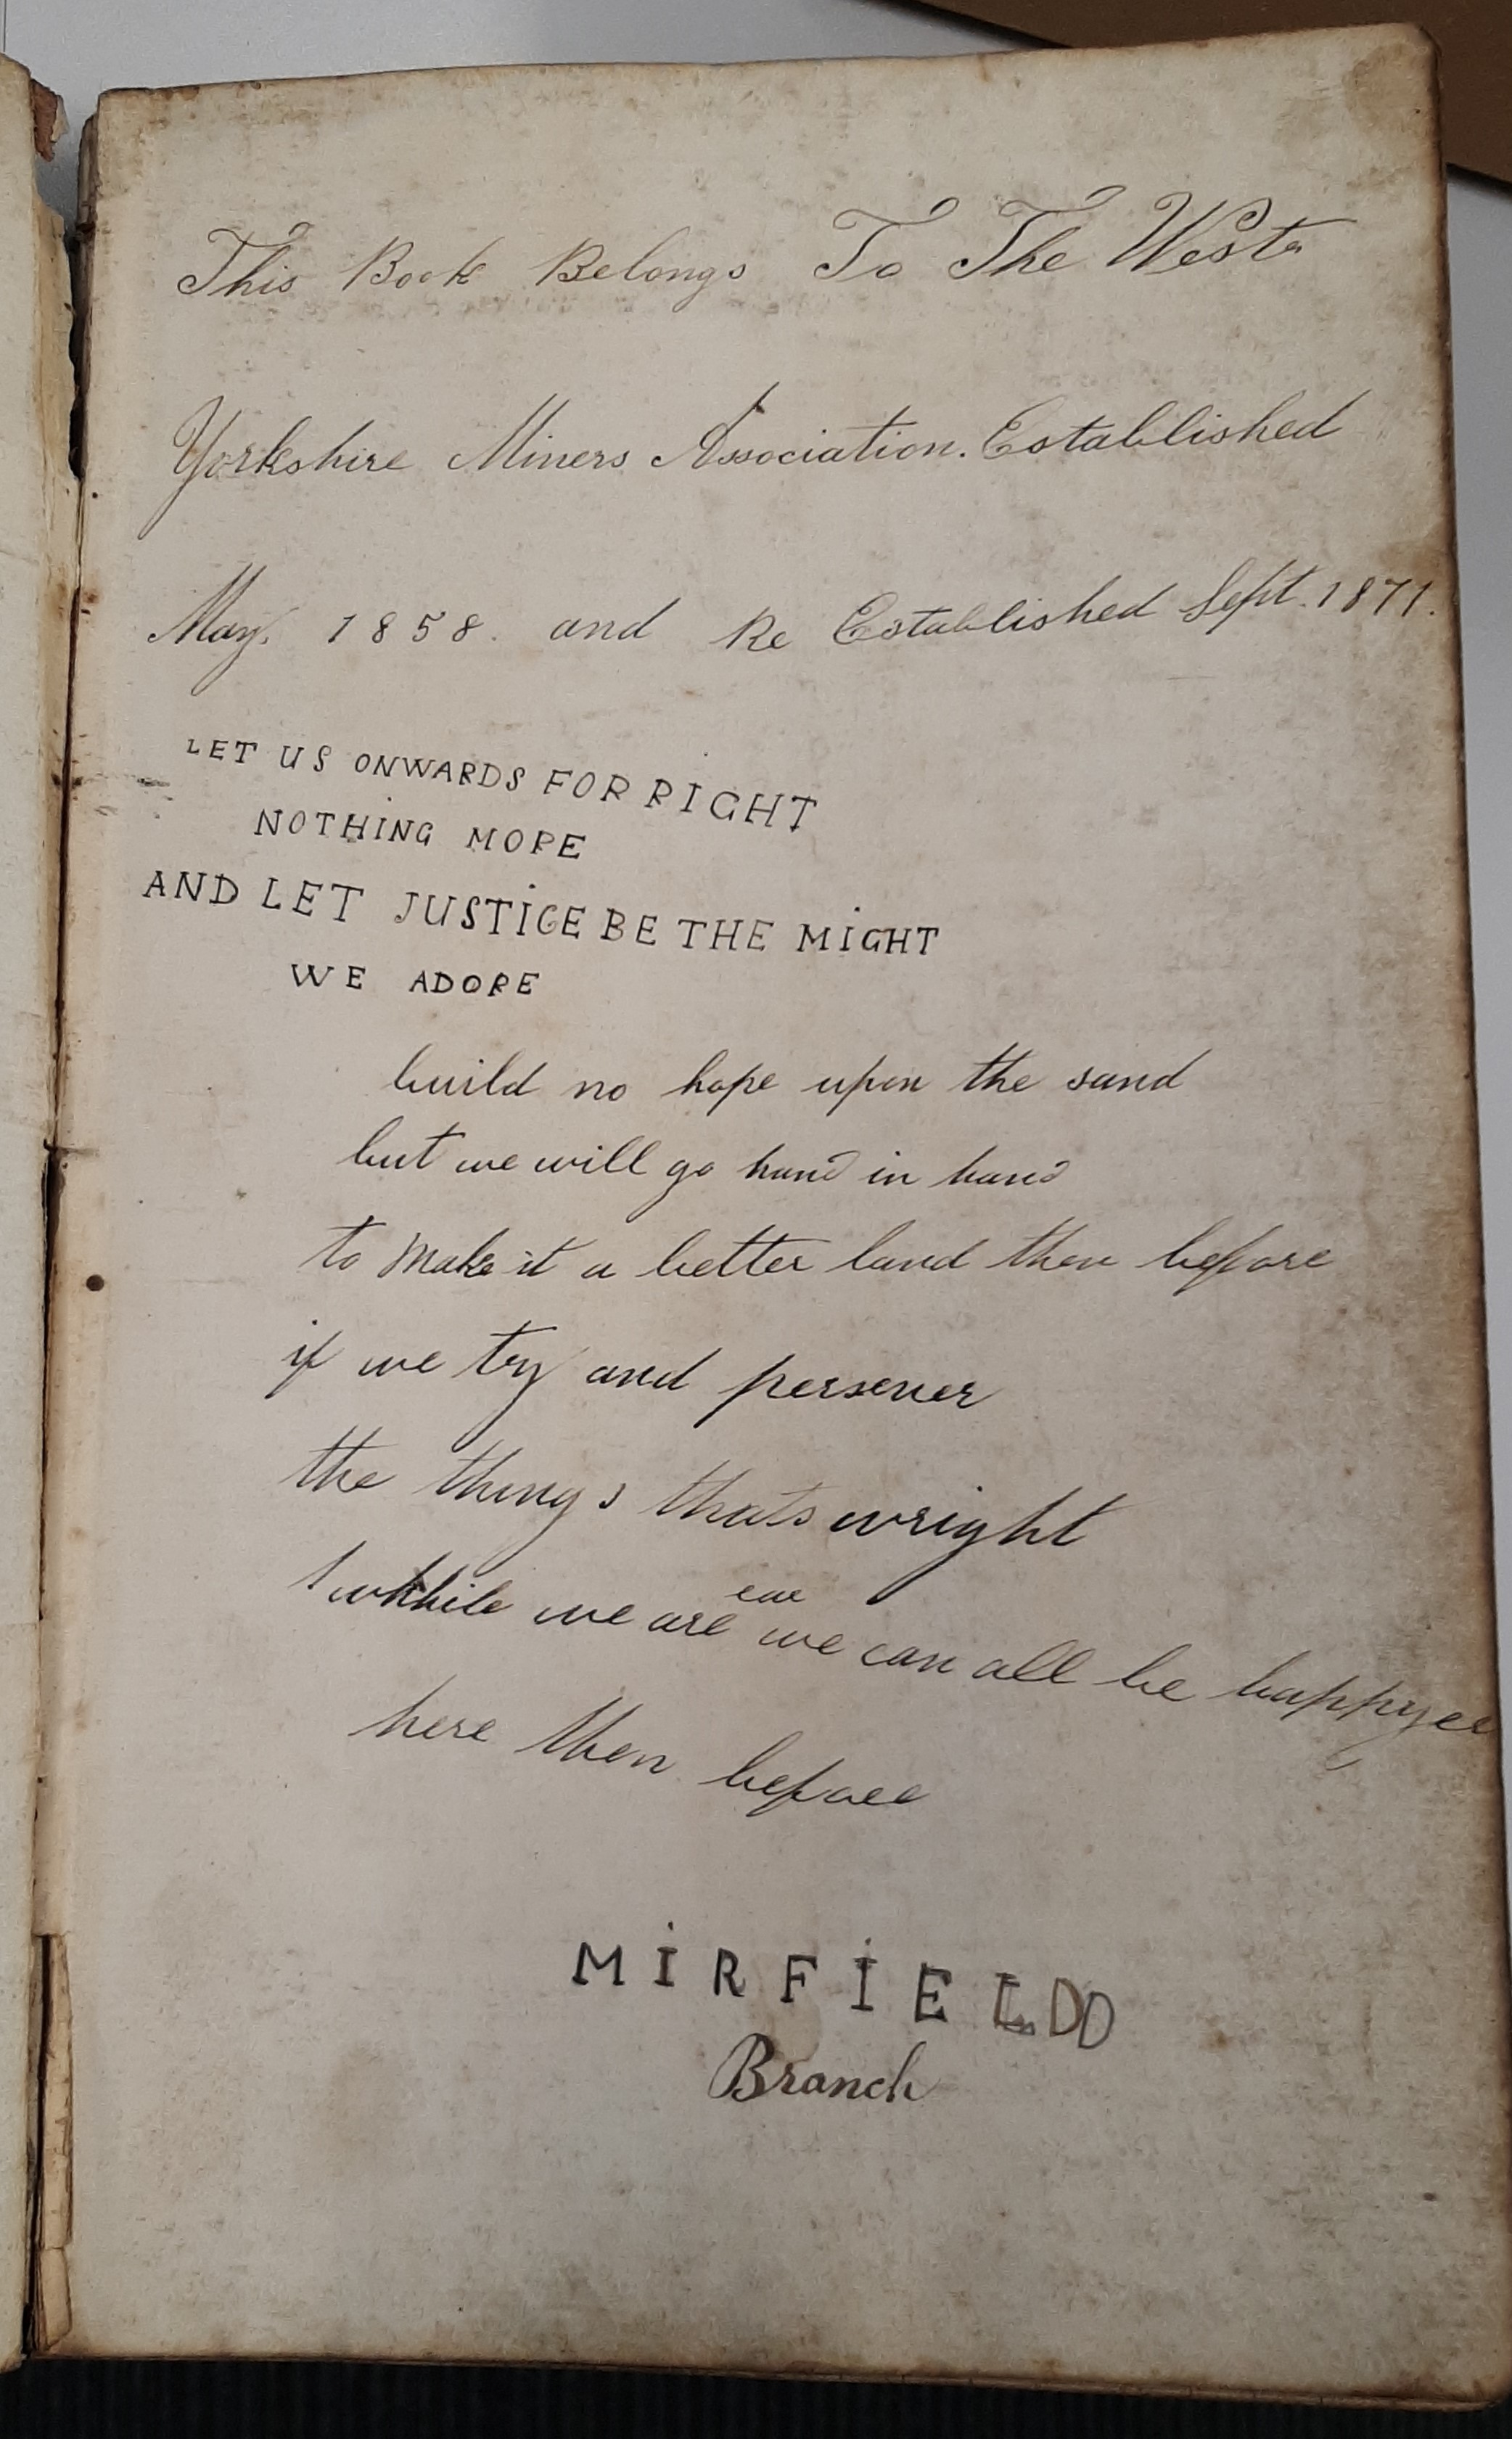 This Book Belongs To The West
Yorkshire Miners Association. Established
May. 1858. and Re Established Sept. 1871.
LET US ONWARDS FOR RIGHT
NOTHING MORE
AND LET JUSTICE BE THE MIGHT
WE ADORE
build no hope upon the sand
but we will go hand in hand
to make it a better land then before
if we try and persever
the things thats wright
while we are we can all be happyer
here then before
MIRFIELD
Branch